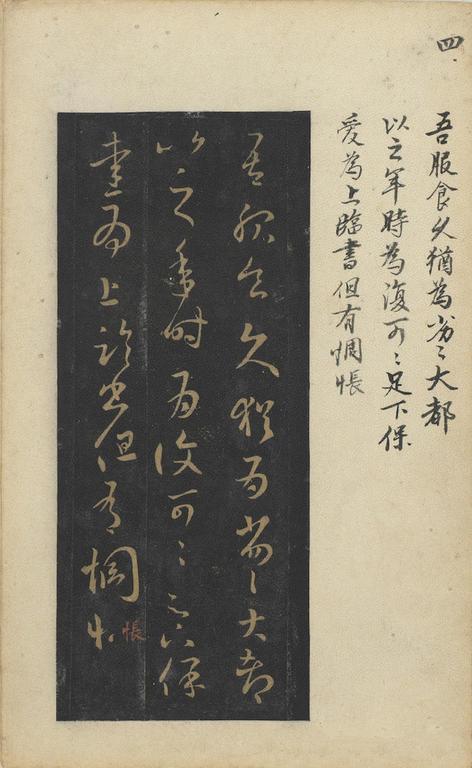 四
吾服食久猶為劣〻大都
以之年時為復可〻足下保
愛為上臨書但有惆悵
吾服食久猶為劣〻大都
以之年時為復可〻足下保
愛為上臨書但有惆
悵